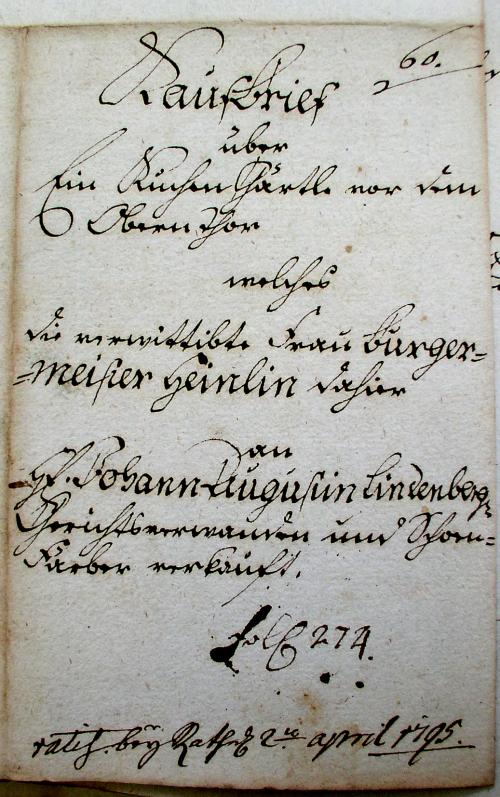 60.
Kaufbrief
über
Ein Kuchen Gärtle vor dem
Obern Thor
welches
die verwittibte Frau Burger-
-meister Heinlin dahier
an
H. Johann Augustin Lindenberg,
Gerichtsverwanden und Schoen-
Färber verkauft.
Fol. 274.
ratif. bey Rath d 2te april 1795.